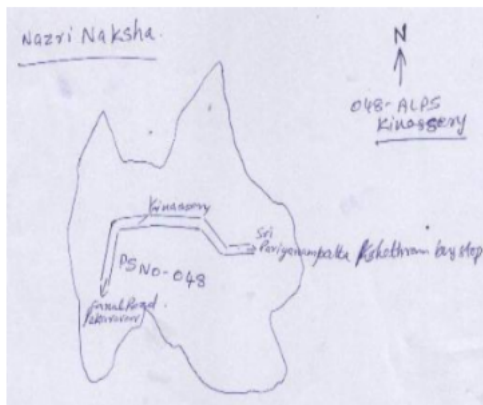 Nazri Naksha.
N
048-ALPS
Kinassery
Kinassery
Sri
Pariyanampatta Kshethram bus stop
PS NO-048
Canal Road